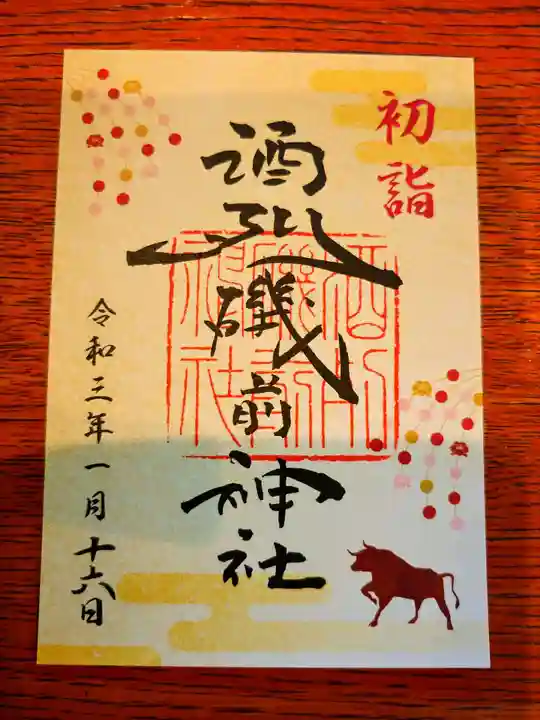 初詣
酒列磯前神社
令和三年一月十六日